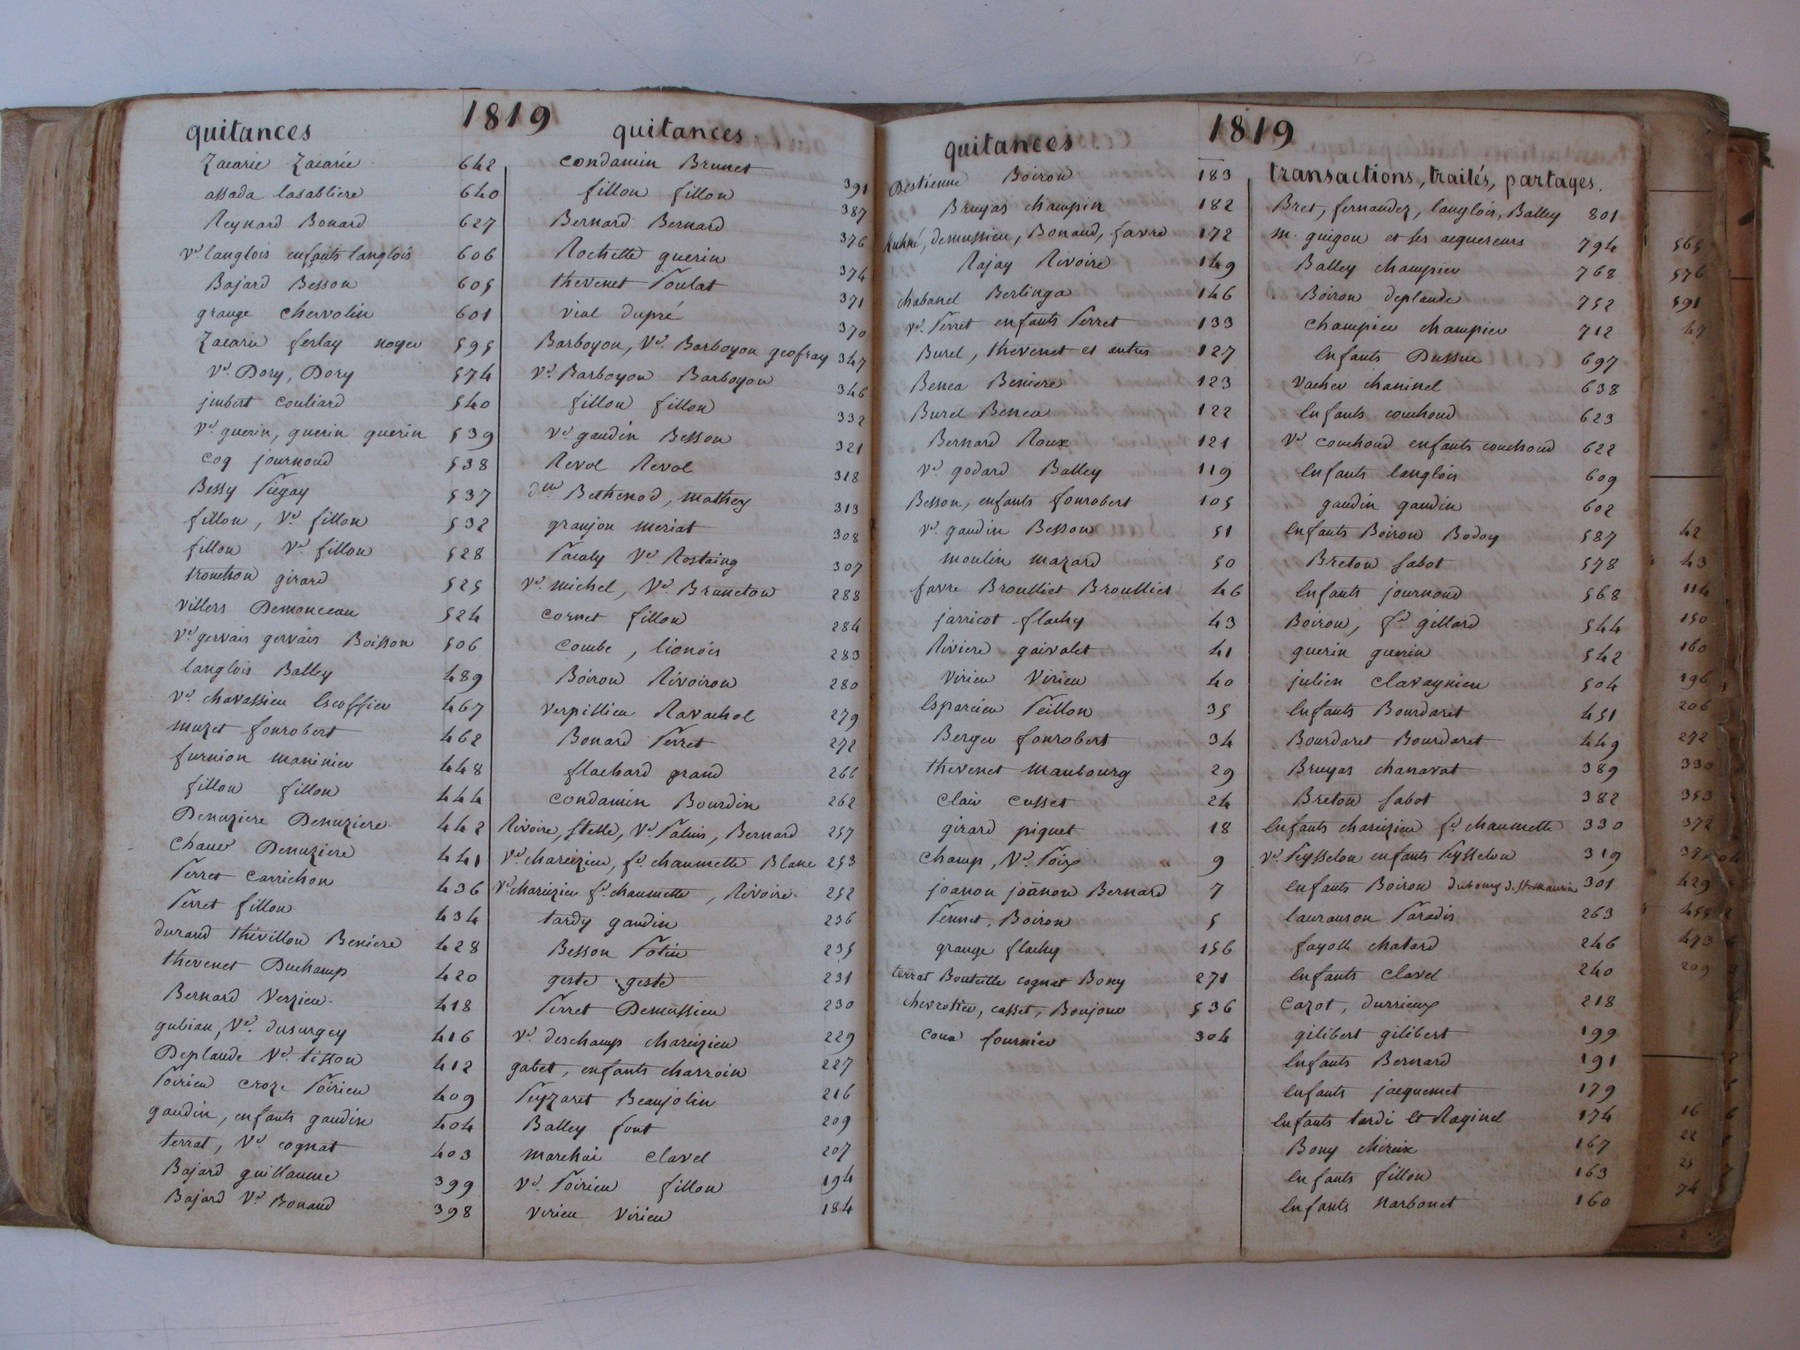 1819
quitances
Zacarie Zacarie 642
assada lasabliere 640
Reynard Bonard 627
Ve. langlois enfants langlois 606
Bajard Besson 605
grange chervolin 601
Zacarie ferlay noyer 595
Ve. Dory, Dory 574
jmbert couliard 540
Ve guerin, guerin guerin 539
coq journoud 538
Bessy Piegay 537
fillon, Ve fillon 532
fillon Ve fillon 528
tronchon girard 525
villers Demonceau 524
Ve gervais gervais Boisson 506
langlois Balley 489
Ve chavassieu Escoffier 467
muzet fourobert 462
furnion maninier 448
fillon fillon 444
Denuziere Denuziere 442
Chauv Denuziere 441
Perret Carrichon 436
Perret fillon 434
durand thivillon Beniere 428
thevenet Duchamp 420
Bernard Verzieu 418
gubian, Ve. dusurgey 416
Deplaude Ve. tisson 412
Poirieu croze Poirieu 409
gaudin, enfants gaudin 404
terrat, Ve cognat 403
Bajard guillaume 399
Bajard Ve Bonand 398
quitances
condamin Brunet 391
fillon fillon 387
Bernard Bernard 376
Rochette guerin 374
thevenet Poulat 371
vial dupré 370
Barboyon, Ve. Barboyon geofray 347
Ve. Barboyon Barboyon 346
fillon fillon 332
Ve gaudin Besson 321
Revol Revol 318
Bethenod, mathey 313
granjon meriat 308
Pacaly Ve Rostaing 307
Ve. michel, Ve Bruneton 288
cornet fillon 284
combe, lionois 283
Boiron Rivoiron 280
verpillieu Ravachol 279
Bonard Perret 272
flachard grand 266
condamin Bourdin 262
Rivoire, stelle, Ve. Paluis, Bernard 257
Ve. chareizieu, fe. chaumette Blanc 253
Ve chareizieu fe. chaumette, Rivoire 252
tardy gaudin 236
Besson Potin 235
geste geste 231
Perret Demussieu 230
Ve. deschamp chareizieu 229
gabet, enfants charroin 227
Peyzaret Beaujolin 216
Balley font 209
marchai clavel 207
Ve. Poirieu fillon 194
virieu virieu 184
1819
quitances
Bestienne Boiron 183
Bruyas champin 182
kuhné, demussieu, Bonand, favre 172
Rajay Rivoire 149
chabanel Berlinga 146
Ve. Perret enfants Perret 133
Burel, thevenet et autres 127
Benea Beniere 123
Burel Benea 122
Bernard Roux 121
Ve godard Balley 119
Besson, enfants fourobert 105
Ve. gaudin Besson 51
moulin mazard 50
favre Broulliet Broulliet 46
jarricot flachy 43
Riviere gaivalet 41
virieu virieu 40
Esparcieu Peillon 35
Berger fourobert 34
thevenet maubourg 29
clair cusset 24
girard piquet 18
champ, Ve. Poix 9
joanon joanon Bernard 7
Pennet, Boiron 5
grange flachy 156
terrat Bouteille cognat Bony 271
chevrotier, casset, Bonjour 536
cour fournier 304
transactions, traités, partages.
Bret, fernandez, langlois, Balley 801
m. guigou et ses acquereurs 794
Balley champier 768
Boiron deplaude 752
champier champier 712
Enfants Dussuc 697
vacher chaninel 638
Enfants couchoud 623
Ve couchoud enfants couchoud 622
Enfants langlois 609
gaudin gaudin 602
Enfants Boiron Bodoy 587
Breton sabot 578
Enfants journoud 568
Boiron, fe gillard 544
guerin guerin 542
julien clavaynieu 504
Enfants Bourdaret 451
Bourdaret Bourdaret 449
Bruyas chanavat 389
Breton sabot 382
Enfants chareizieu fe. chaumette 330
Ve. Peysselon enfants Peysselon 319
Enfants Boiron dubourg d. st maurice 301
lauranson Paradis 263
fayolle chatard 246
Enfants clavel 240
cazot, durrieux 218
gilibert gilibert 199
Enfants Bernard 191
Enfants jacquemet 179
Enfants tardi et Raginel 174
Bony chireix 167
Enfants fillon 163
Enfants Narbonet 160
565
576
591
47
42
43
114
150
160
196
206
272
330
353
372
429
455
473
209
16
22
25
74